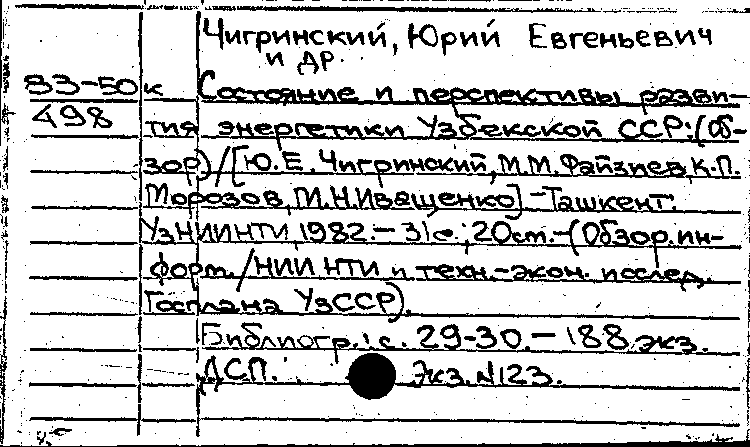 Чигринский, Юрий Евгеньевич
и др.
83-50к Состояние и перспективы разви-
498 тия энергетики Узбекской ССР: (Об-
зор) / [Ю.Е. Чигринский, М.М. Файзиев, К.П.
Морозов, М.Н. Иващенко] - Ташкент:
УзНИИНТИ, 1982. - 31с.; 20 см. - (Обзор. ин-
форм. / НИИ НТИ и техн.-экон. исслед.
Госплана УзССР).
Библиогр.: с. 29-30. - 188 экз.
ДСП. Экз. N123.